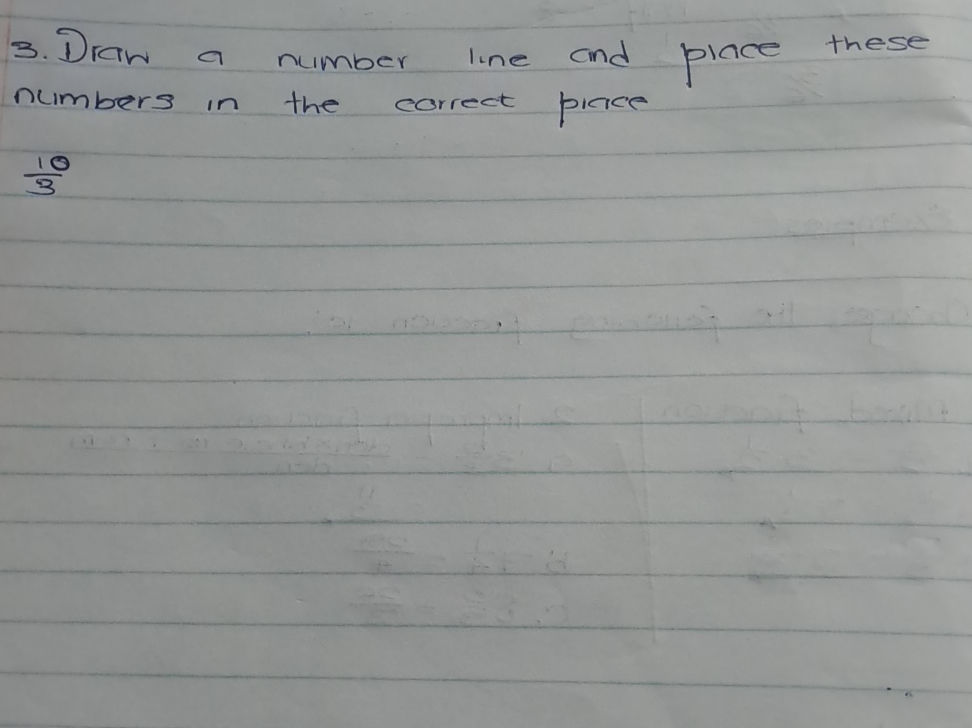 3. Draw a number line and place these
numbers in the correct place
10
3